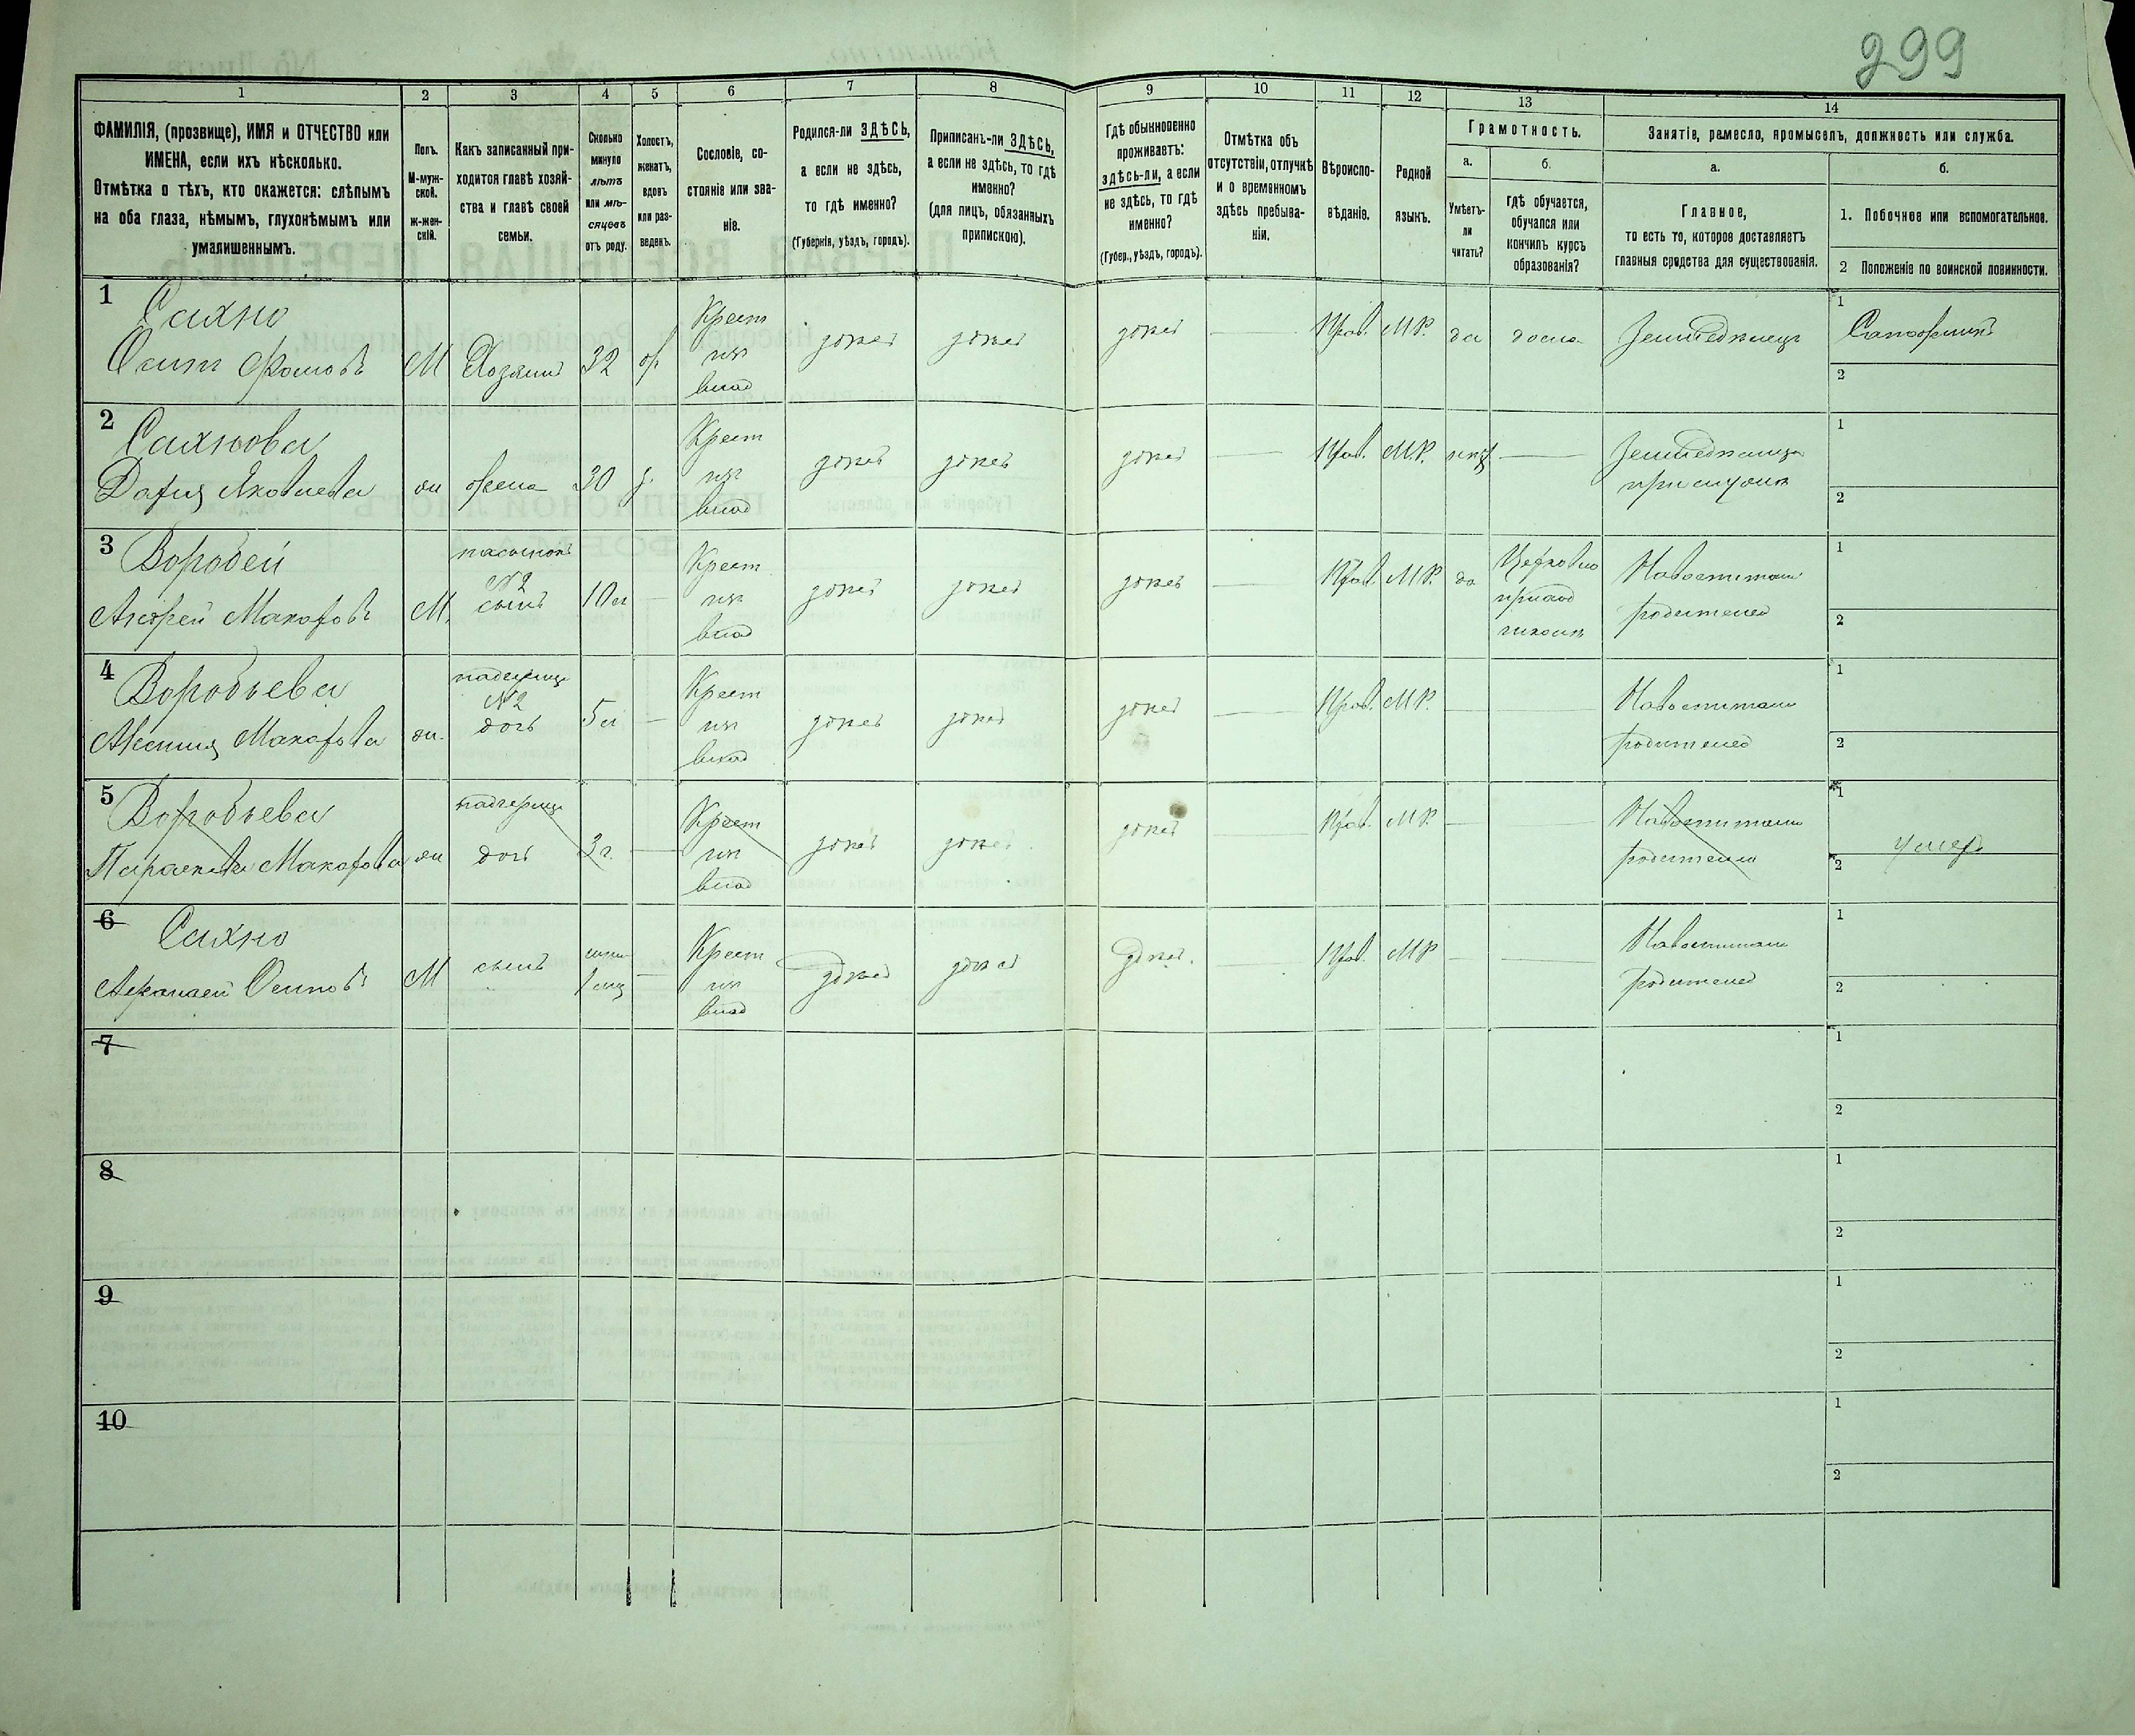 299
1 2 3 4 5 6 7 8 9 10 11 12 13 14
ФАМИЛІЯ, (прозвище), ИМЯ и ОТЧЕСТВО или
ИМЕНА, если ихъ нѣсколько.
Отмѣтка о тѣхъ, кто окажется: слѣпымъ
на оба глаза, нѣмымъ, глухонѣмымъ или
умалишеннымъ.
Полъ.
М-муж-
ской.
Ж-жен-
скій.
Какъ записанный при-
ходится главѣ хозяй-
ства и главѣ своей
семьи.
Сколько
минуло
лѣтъ
или мѣ-
сяцевъ
отъ роду.
Холостъ,
женатъ,
вдовъ
или раз-
веденъ.
Сословіе, со-
стояніе или зва-
ніе.
Родился-ли ЗДѢСЬ,
а если не здѣсь,
то гдѣ именно?
(Губернія, уѣздъ, городъ).
Приписанъ-ли ЗДѢСЬ,
а если не здѣсь, то гдѣ
именно?
(для лицъ, обязанныхъ
припискою).
Гдѣ обыкновенно
проживаетъ:
здѣсь-ли, а если
не здѣсь, то гдѣ
именно?
(Губер., уѣздъ, городъ).
Отмѣтка объ
отсутствіи, отлучкѣ
и о временномъ
здѣсь пребыва-
ніи.
Вѣроиспо-
вѣданіе.
Родной
языкъ.
Грамотность.
а.
Умѣетъ-
ли
читать?
б.
гдѣ обучается,
обучался или
кончилъ курсъ
образованія?
Занятіе, ремесло, промыселъ, должность или служба.
а.
Главное,
то есть то, которое доставляетъ
главныя средства для существованія.
б.
1. Побочное или вспомогательное.
2 Положеніе по воинской повинности.
1 Сахно
Осипъ Фомовъ
М
Хозяинъ
32
Крест
изъ
влад
здѣсь
здѣсь
здѣсь
Прав.
М.Р.
да
дома
Земледѣлецъ
1 Сапожникъ
2
2 Сахнова
Дарія Яковлева
ж
жена
30
Крест
изъ
влад
здѣсь
здѣсь
здѣсь
Прав.
М.Р.
нѣтъ
Земледѣлица
при мужѣ
1
2
3 Воробей
Андрей Макаровъ
М.
пасынокъ
№2
сынъ
10 л
Крест
изъ
влад
здѣсь
здѣсь
здѣсь
Прав.
М.Р.
да
Церковно
приход
школѣ
На воспитаніи
родителей
1
2
4 Воробьева
Аксинія Макарова
ж.
падчерица
№2
дочь
5 л
Крест
изъ
влад
здѣсь
здѣсь
здѣсь
Прав.
М.Р.
На воспитаніи
родителей
1
2
5 Воробьева
Параскева Макарова
ж
падчерица
дочь
3 г.
Крест
изъ
влад
здѣсь
здѣсь
здѣсь
Прав.
М.Р.
На воспитаніи
родителей
1
2
умер
6 Сахно
Афанасій Осиповъ
М
сынъ
Крест
изъ
влад
здѣсь
здѣсь
здѣсь.
Прав.
М.Р.
На воспитаніи
родителей
1
2
7
1
2
8
1
2
9
1
2
10
1
2